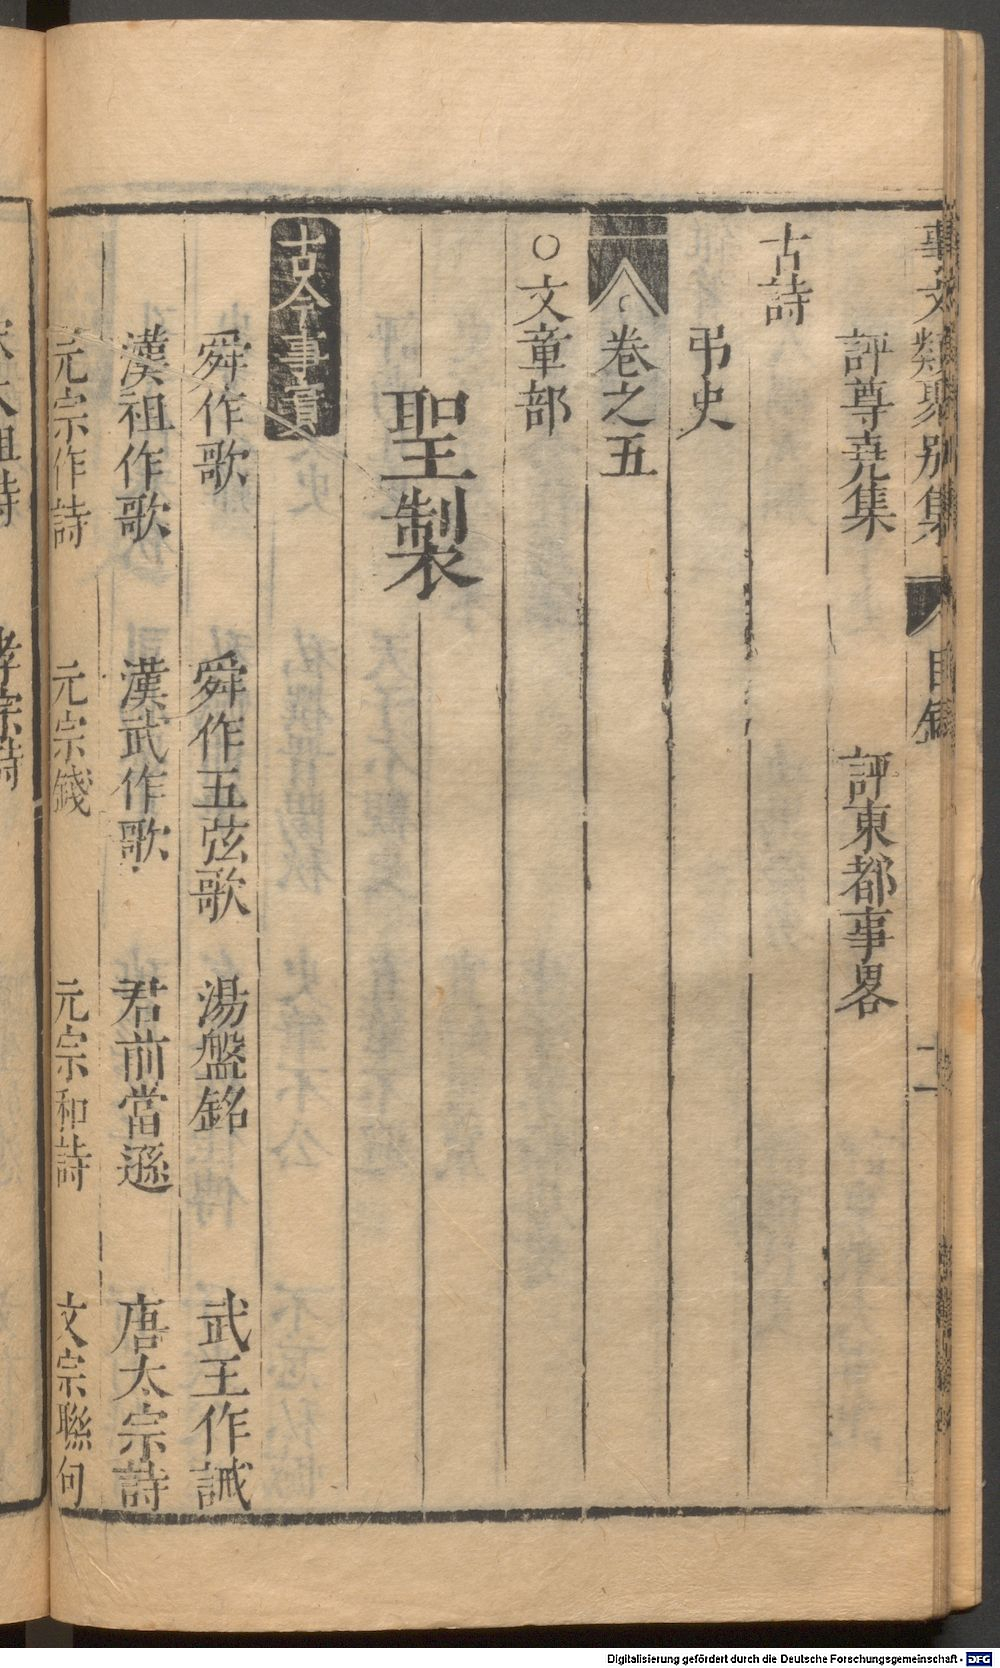 事文類聚別集 目錄 二
評尊堯集 評東都事畧
古詩
弔史
卷之五
○文章部
聖製
古今事實
舜作歌 舜作五弦歌 湯盤銘 武王作誡
漢祖作歌 漢武作歌 君前當遜 唐太宗詩
元宗作詩 元宗餞 元宗和詩 文宗聯句
孝宗詩
Digitalisierung gefördert durch die Deutsche Forschungsgemeinschaft - DFG